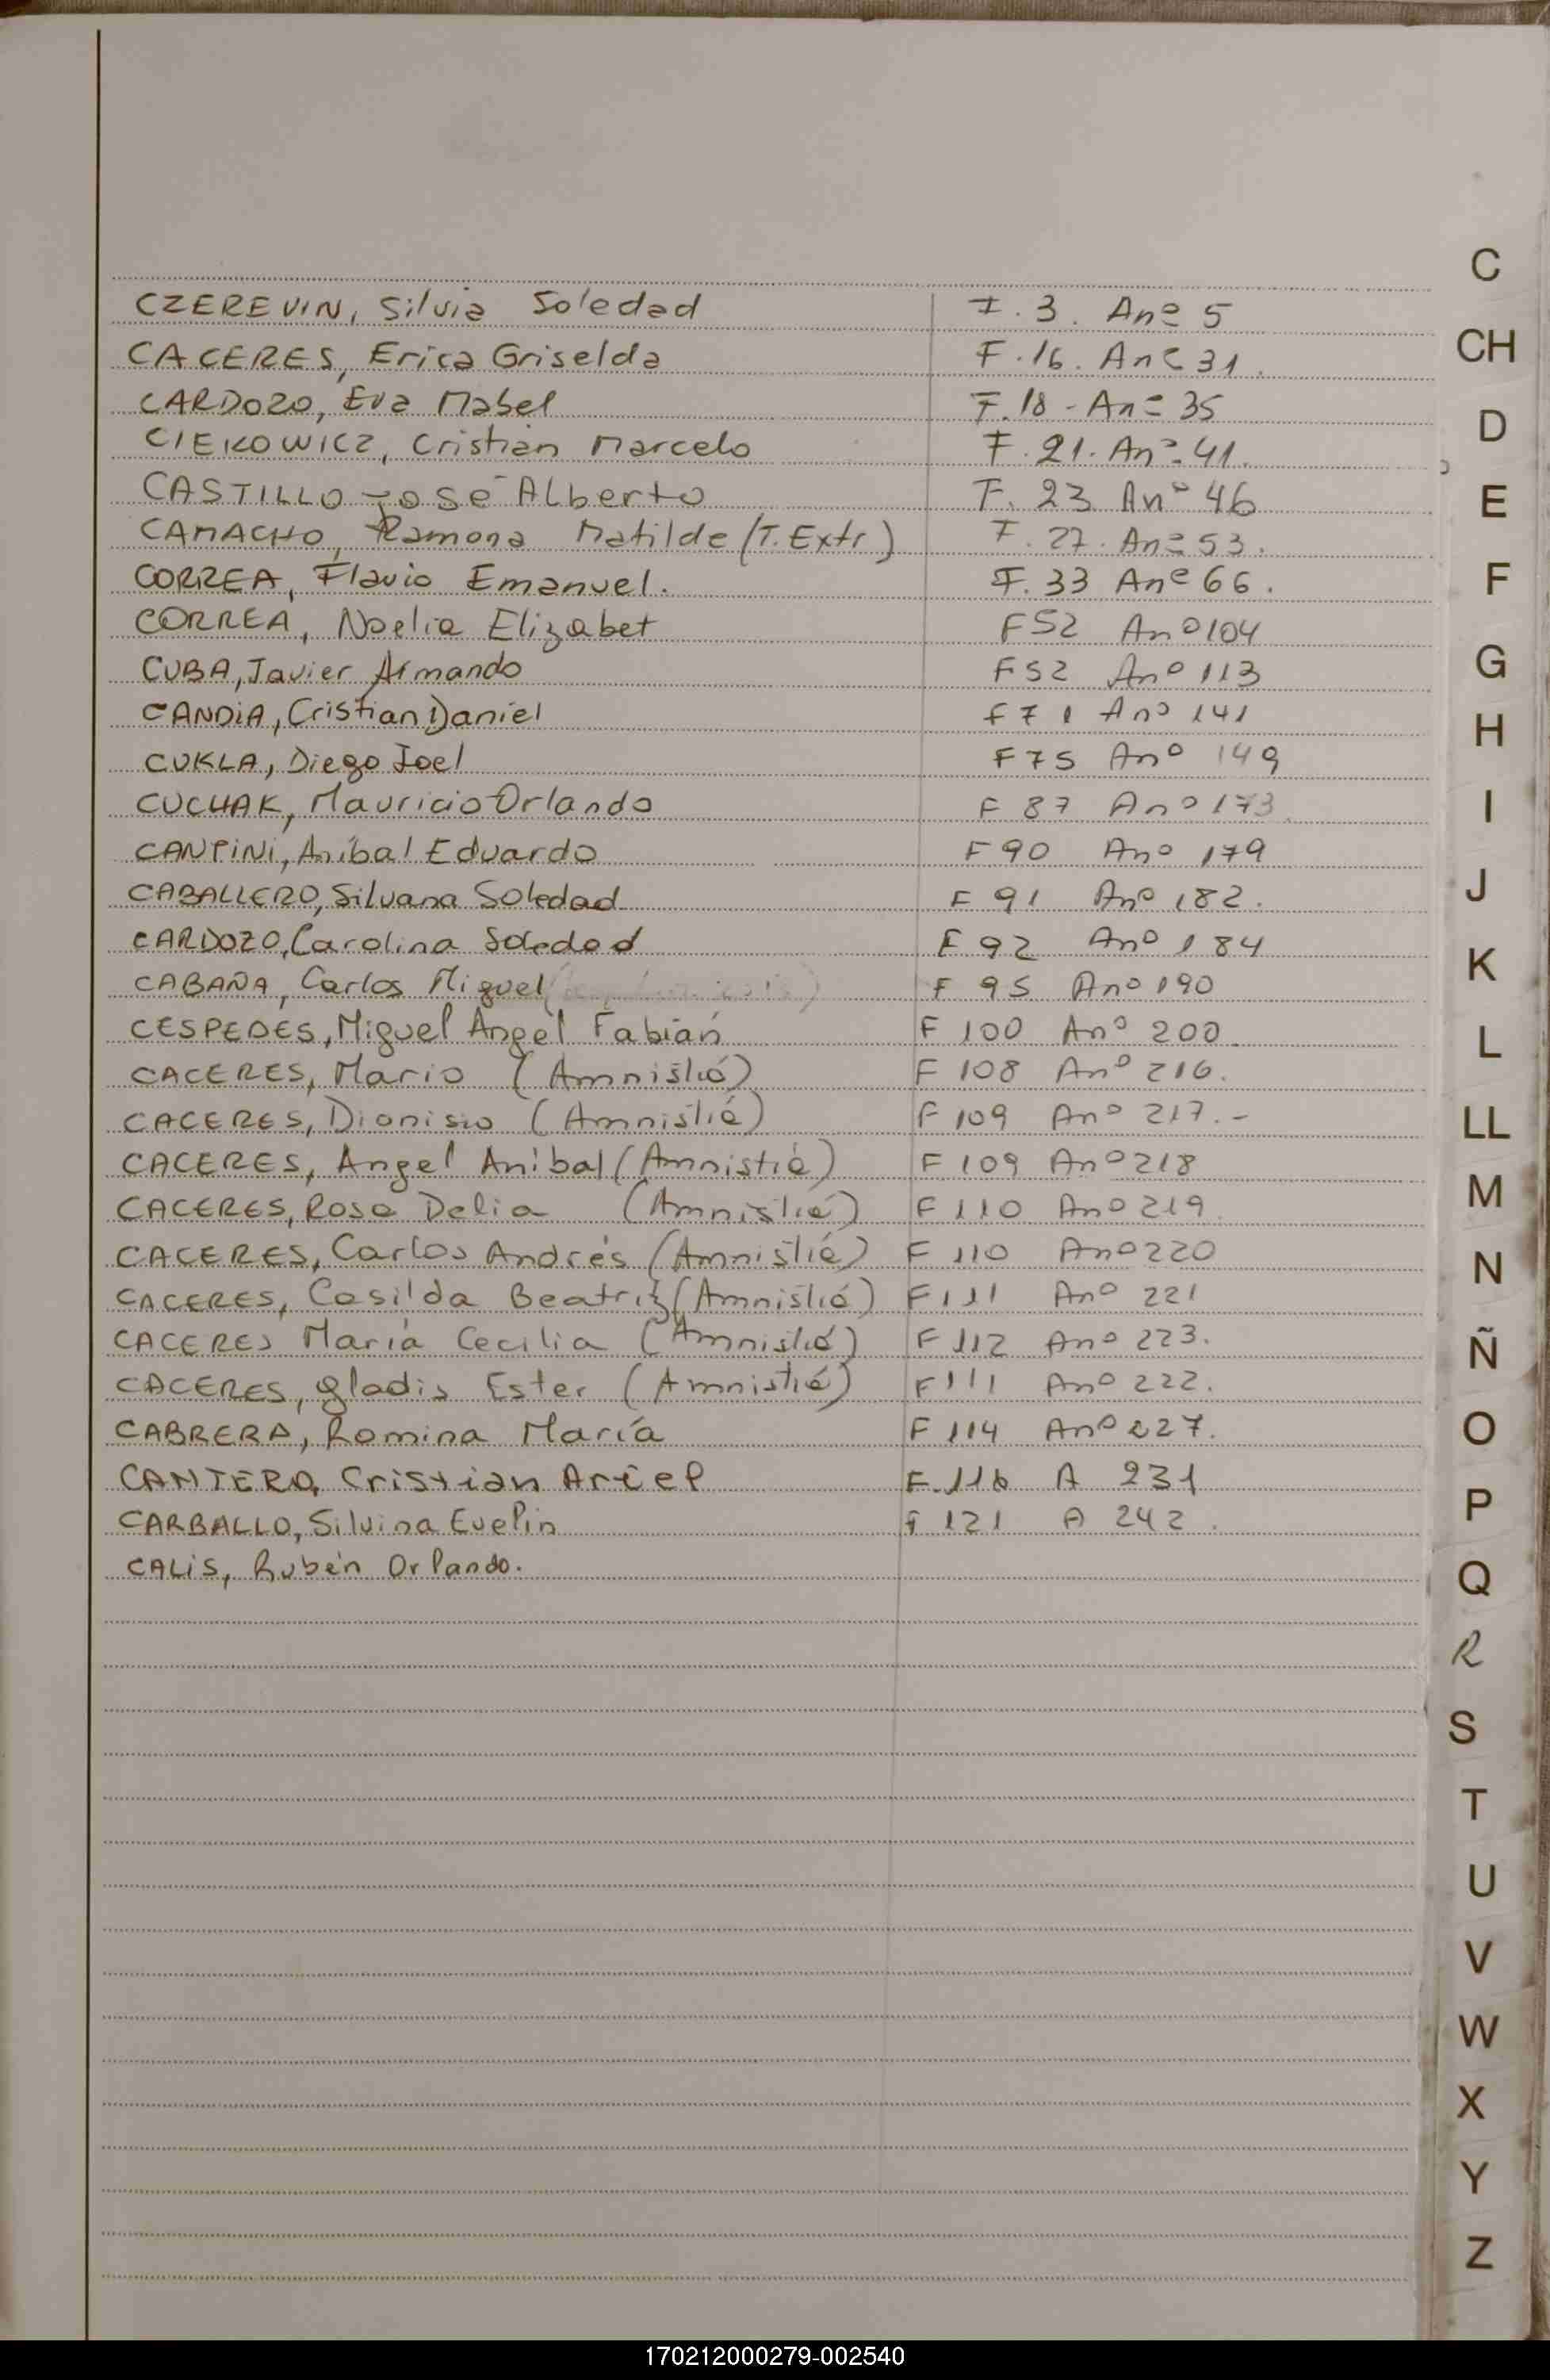 CZEREVIN, Silvia Soledad F. 3. Anº 5
CACERES, Erica Griselda F. 16. Anº 31.
CARDOZO, Eva Mabel F. 18 - Anº 35
CIEKOWICZ, Cristian Marcelo F. 21. Anº 41.
CASTILLO José Alberto F. 23 Anº 46
CAMACHO, Ramona Matilde (T. Extr) F. 27. Anº 53.
CORREA, Flavio Emanuel. F. 33 Anº 66.
CORREA, Noelia Elizabet F52 Anº 104
CUBA, Javier Armando F52 Anº 113
CANDIA, Cristian Daniel F 71 Anº 141
CUKLA, Diego Joel F75 Anº 149
CUCHAK, Mauricio Orlando F 87 Anº 173.
CANPINI, Aníbal Eduardo F90 Anº 179
CABALLERO, Silvana Soledad F 91 Anº 182.
CARDOZO, Carolina Soledad F 92 Anº 184
CABAÑA, Carlos Miguel F 95 Anº 190
CESPEDES, Miguel Angel Fabián F 100 Anº 200.
CACERES, Mario (Amnistió) F 108 Anº 216.
CACERES, Dionisio (Amnistió) F 109 Anº 217.-
CACERES, Angel Aníbal (Amnistió) F 109 Anº 218
CACERES, Rosa Delia (Amnistió) F 110 Anº 219.
CACERES, Carlos Andrés (Amnistió) F 110 Anº 220
CACERES, Casilda Beatriz (Amnistió) F 111 Anº 221
CACERES María Cecilia (Amnistió) F 112 Anº 223.
CACERES, Gladis Ester (Amnistió) F 111 Anº 222.
CABRERA, Romina María F 114 Anº 227.
CANTERO, Cristian Ariel F. 116 A 231
CARBALLO, Silvina Evelin F 121 A 242.
CALIS, Rubén Orlando.
C
CH
D
E
F
G
H
I
J
K
L
LL
M
N
Ñ
O
P
Q
R
S
T
U
V
W
X
Y
Z
170212000279-002540